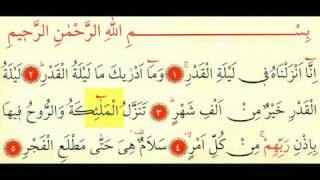 بِسْــــــمِ اللهِ الرَّحْمٰنِ الرَّحٖيمِ
اِنَّٓا اَنْزَلْنَاهُ فٖى لَيْلَةِ الْقَدْرِۚ ﴿١﴾ وَمَٓا اَدْرٰيكَ مَا لَيْلَةُ الْقَدْرِۜ ﴿٢﴾ لَيْلَةُ
الْقَدْرِ خَيْرٌ مِنْ اَلْفِ شَهْرٍۜ ﴿٣﴾ تَنَزَّلُ الْمَلٰٓئِكَةُ وَالرُّوحُ فٖيهَا
بِاِذْنِ رَبِّهِمْۚ مِنْ كُلِّ اَمْرٍۙ ﴿٤﴾ سَلَامٌ۠ هِىَ حَتّٰى مَطْلَعِ الْفَجْرِ ﴿٥﴾